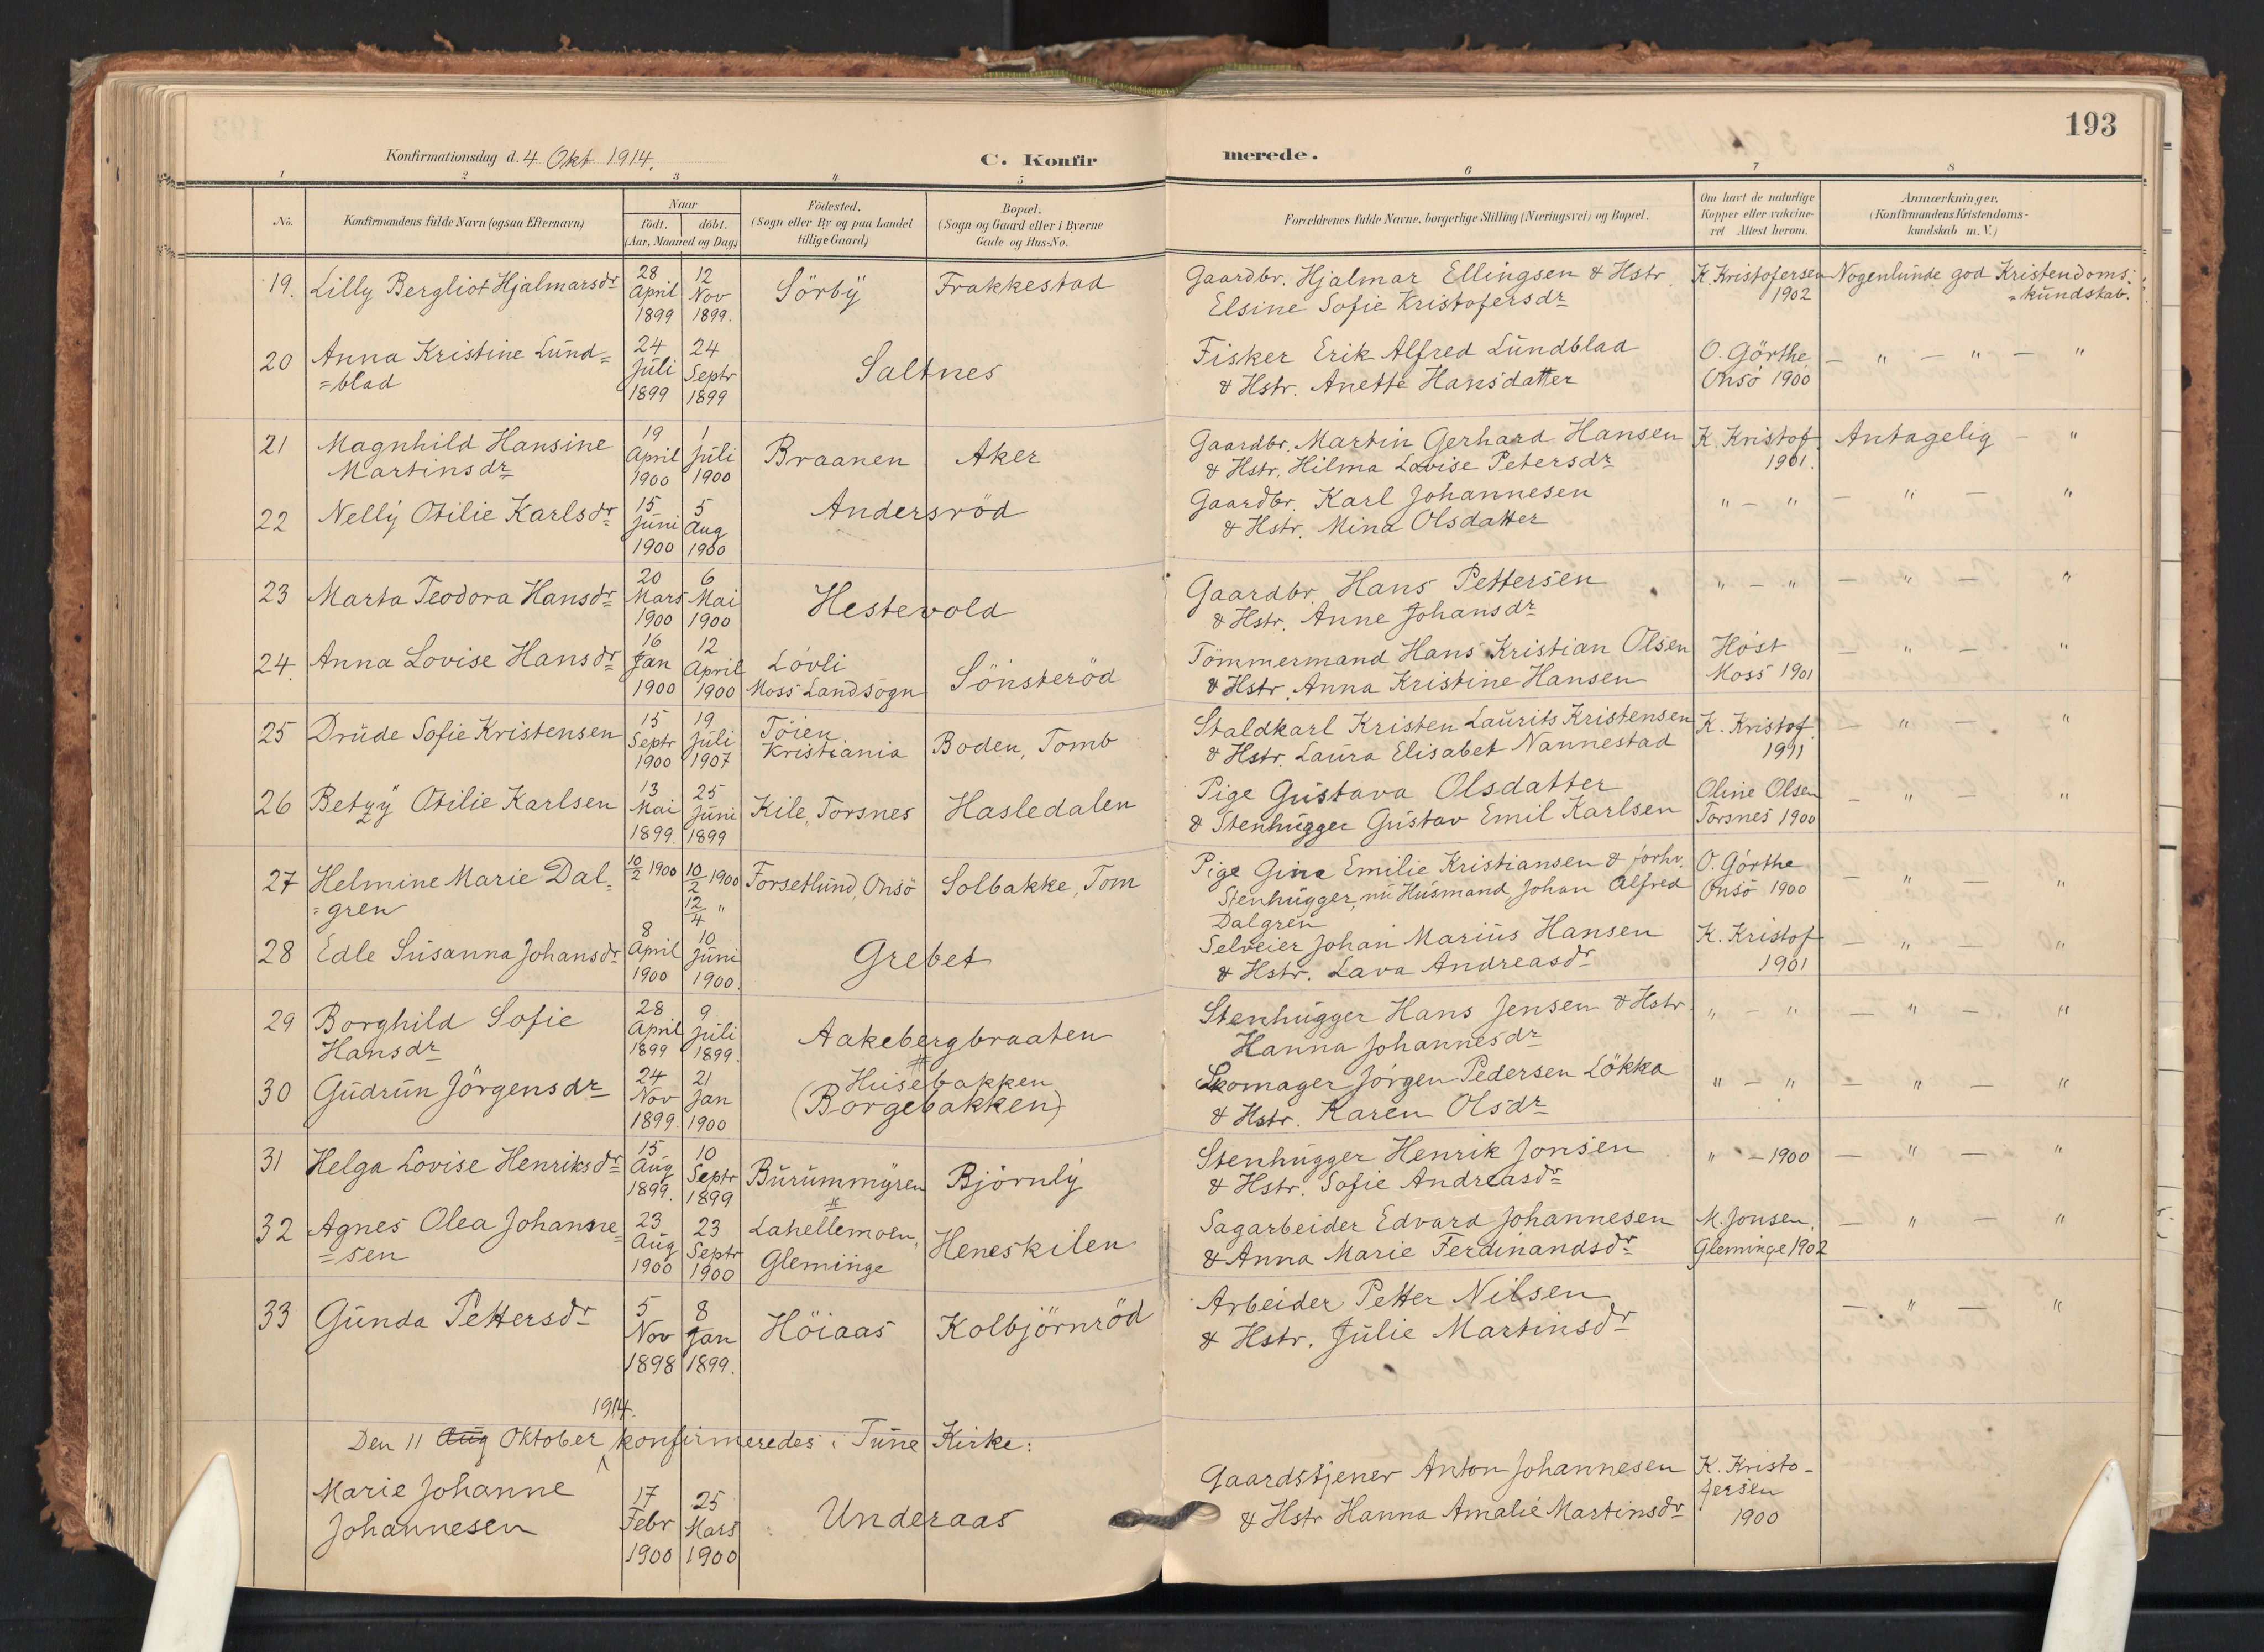 193
Konfirmationsdag d. 4 Okt 1914.
C. Konfirmerede.
1 2 3 4 5 6 7 8
No. Konfirmandens fulde Navn (ogsaa Efternavn) Naar födt. döbt. (Aar, Maaned og Dag) Födested. (Sogn eller By og paa Landet tillige Gaard) Bopæl. (Sogn og Gaard eller i Byerne Gade og Hus-No. Forældrenes fulde Navne, borgerlige Stilling (Næringsvei) og Bopæl. Om havt de naturlige Kopper eller vaccineret Attest herom. Anmærkninger. (Konfirmandens Kristendomskundskab m. V.)
19. Lilly Bergliot Hjalmarsdr 28 April 1899 12 Nov 1899. Sörby Frakkestad Gaardbr. Hjalmar Ellingsen & Hstr. Elsine Sofie Kristofersdr K. Kristofersen 1902 Nogenlunde god Kristendoms-kundskab.
20 Anna Kristine Lund=
=blad 24 Juli 1899 24 Septr 1899 Saltnes Fisker Erik Alfred Lundblad
& Hstr. Anette Hansdatter O. Görthe Onsö 1900 — " — " — "
21 Magnhild Hansine
Martinsdr 19 April 1900 1 Juli 1900 Braanen Aker Gaardbr. Martin Gerhard Hansen
& Hstr. Hilma Lovise Petersdr K. Kristof. 1901. Antagelig — "
22 Nelly Otilie Karlsdr 15 Juni 1900 5 Aug 1900 Andersröd Gaardbr. Karl Johannesen
& Hstr. Mina Olsdatter " — " — " — "
23 Marta Teodora Hansdr 20 Mars 1900 6 Mai 1900 Hestevold Gaardbr. Hans Pettersen
& Hstr. Anne Johansdr " — " — " — "
24. Anna Lovise Hansdr 16 Jan 1900 12 April 1900 Lövli
Moss Landsogn Sönsteröd Tömmermand Hans Kristian Olsen
& Hstr. Anna Kristine Hansen Höst
Moss 1901 — " — "
25 Drude Sofie Kristensen 15 Septr 1900 19 Juli 1907 Töien
Kristiania Boden, Tomb Staldkarl Kristen Laurits Kristensen
& Hstr. Laura Elisabet Nannestad K. Kristof. 1911 — " — "
26 Betzy Otilie Karlsen 13 Mai 1899. 25 Juni 1899 Kile, Torsnes Hasledalen Pige Gustava Olsdatter
& Stenhugger Gustav Emil Karlsen Oline Olsen
Torsnes 1900 — " — "
27 Helmine Marie Dal=
=gren 10/2 1900 10/2 1900 12/4 " Forsetlund, Onsö Solbakke, Tom Pige Gina Emilie Kristiansen & forhv.
Stenhugger, nu Husmand Johan Alfred
Dalgren O. Görthe
Onsö 1900 — " — "
28 Edle Susanna Johansdr 8 April 1900 10 Juni 1900. Grebet Selveier Johan Marius Hansen
& Hstr. Lava Andreasdr K. Kristof 1901 — " — "
29 Borghild Sofie
Hansdr 28 April 1899 9 Juli 1899. Aakebergbraaten Stenhugger Hans Jensen & Hstr.
Hanna Johannesdr " — " — " — "
30 Gudrun Jörgensdr 24 Nov 1899. 21 Jan 1900 Husebakken
(Borgebakken) Skomager Jörgen Pedersen Lökka
& Hstr. Karen Olsdr " — " — " — "
31 Helga Lovise Henriksdr 15 Aug 1899. 10 Septr 1899 Burummyren Björnly Stenhugger Henrik Jonsen
& Hstr. Sofie Andreasdr " — 1900 — " — "
32 Agnes Olea Johanne=
=sen 23 Aug 1900 23 Septr 1900 Lahellemoen,
Gleminge Heneskilen Sagarbeider Edvard Johannesen
& Anna Marie Ferdinandsdr M. Jonsen,
Gleminge 1902 — " — "
33 Gunda Pettersdr 5 Nov 1898 8 Jan 1899. Höiaas Kolbjörnröd Arbeider Petter Nilsen
& Hstr. Julie Martinsdr — " — "
1914.
Den 11 Aug Oktober konfirmeredes i Tune Kirke:
Marie Johanne
Johannesen 17 Febr 1900 25 Mars 1900 Underaas Gaardstjener Anton Johannesen
& Hstr Hanna Amalie Martinsdr K. Kristo-
fersen
1900